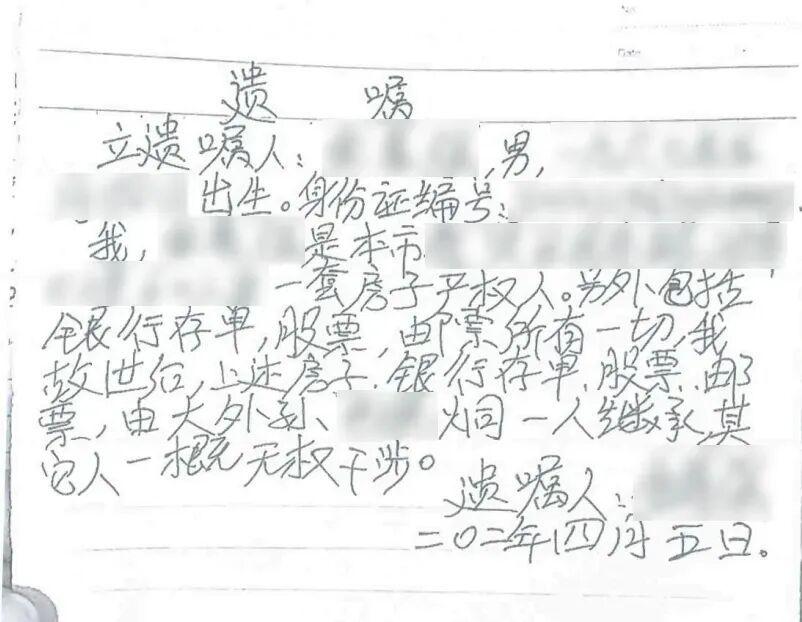 No.
Date
遗 嘱
立遗嘱人: ,男,
出生。身份证编号:
我, 是本市
一套房子产权人。另外包括
银行存单,股票,邮票所有一切,我
故世后,上述房子、银行存单、股票、邮
票,由大外孙、 炯一人继承,其
它人一概无权干涉。
遗嘱人:
二〇二年四月五日。